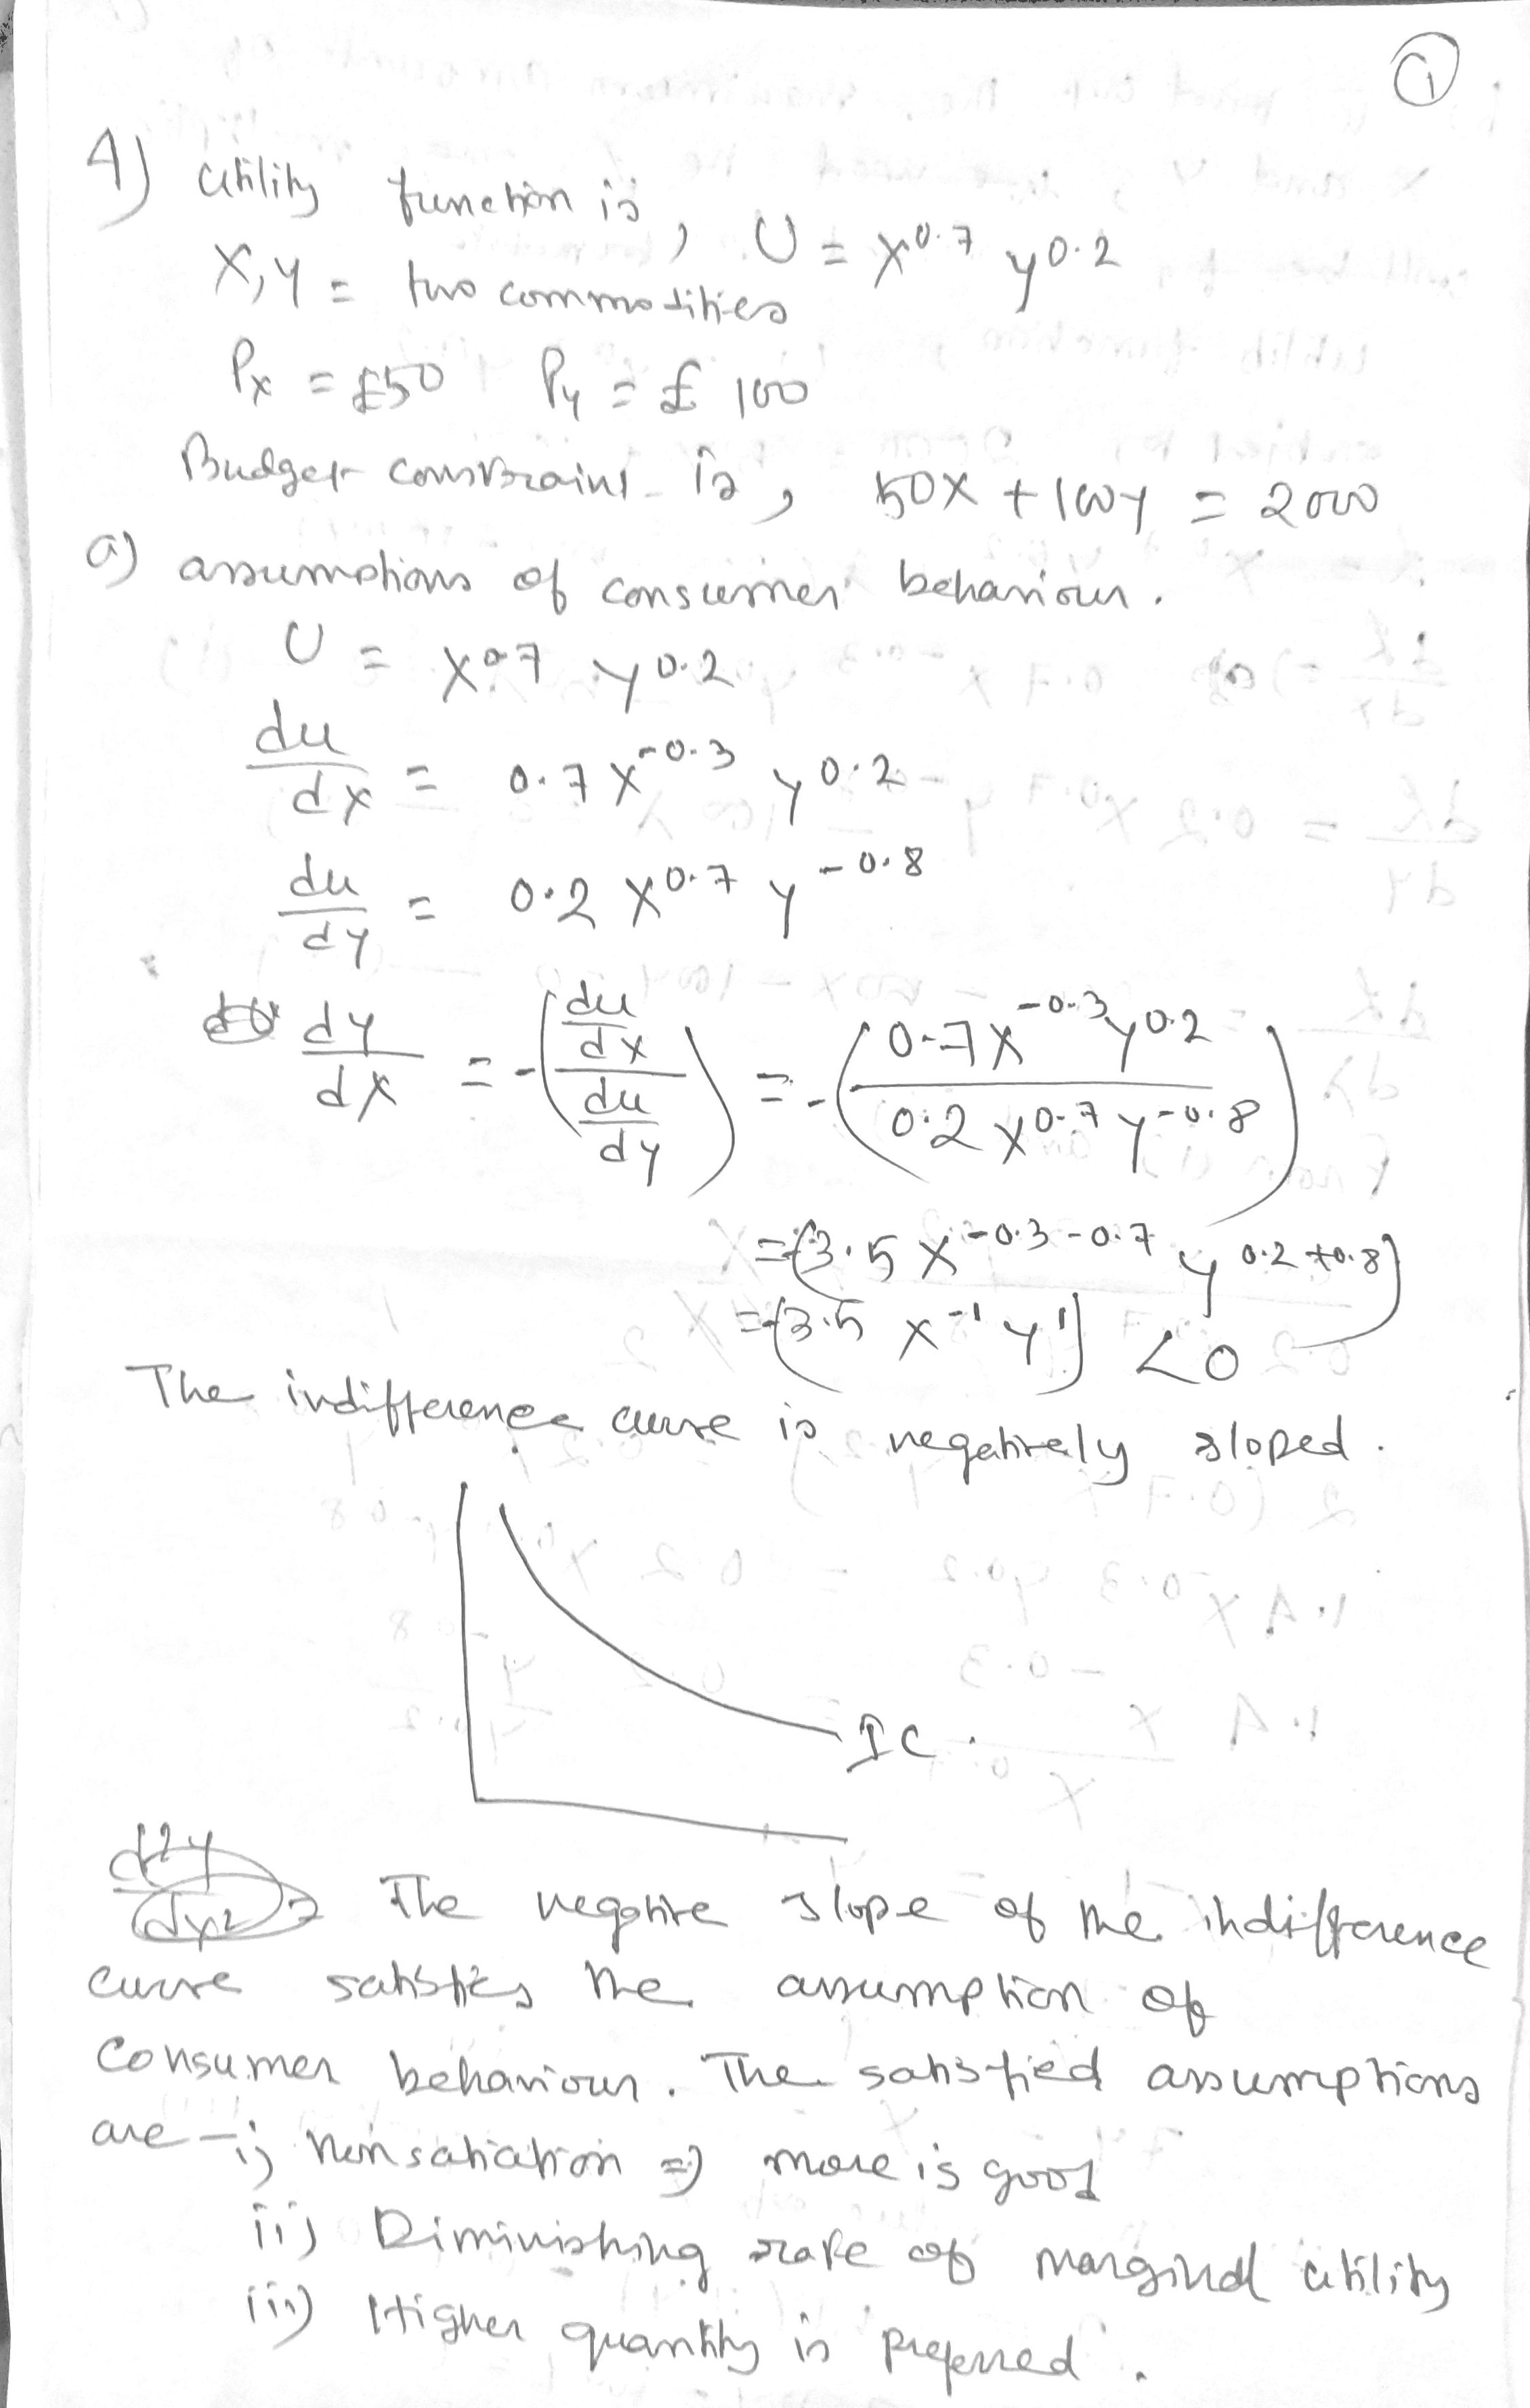 1
4) Utility function is, U = X^0.7 Y^0.2
X, Y = two commodities
Px = £50 Py = £ 100
Budget constraint is, 50X + 100Y = 2000
a) assumptions of consumer behaviour.
U = X^0.7 Y^0.2
du/dx = 0.7 X^-0.3 Y^0.2
du/dy = 0.2 X^0.7 Y^-0.8
dy/dx = -((du/dx)/(du/dy)) = -((0.7 X^-0.3 Y^0.2)/(0.2 X^0.7 Y^-0.8))
= -(3.5 X^-0.3-0.7 Y^0.2+0.8)
= -(3.5 X^-1 Y^1) < 0
The indifference curve is negatively sloped.
IC.
The negative slope of the indifference
curve satisfies the assumption of
consumer behaviour. The satisfied assumptions
are - i) Non satiation => more is good
ii) Diminishing rate of marginal utility
iii) Higher quantity is preferred.